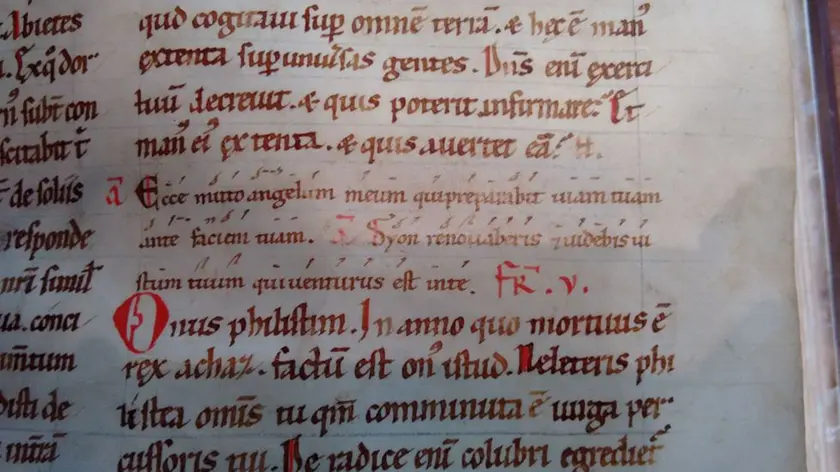 Abietes
. Exq̄ dor
subt̄ con
scitabit t̄
de soliis
responde
nr̄i simil̄
ua. conci
mtum
disti de
mīrā
qud cogitaui sup̄ omnē terrā. & hęc ē man᷒
extenta sup uniu᷒sas gentes. Dn̄s enī exerci
tuū decreuit. & quis poterit infirmare? Et
man᷒ ei᷒ extenta. & quis auertet eā?
a᷑ Ecce mitto angelum meum qui preparabit uiam tuam
ante faciem tuam. a᷑ Syon renouaberis & uidebis iu
stum tuum qui uenturus est in te. FR̄. v.
Onus philistim. In anno quo mortuus ē
rex achaz. factū est on᷒ istud. Ne leteris phi
listea omīs tu qm̄ comminuta ē uirga per
cussoris tui. De radice enī colubri egrediet᷑